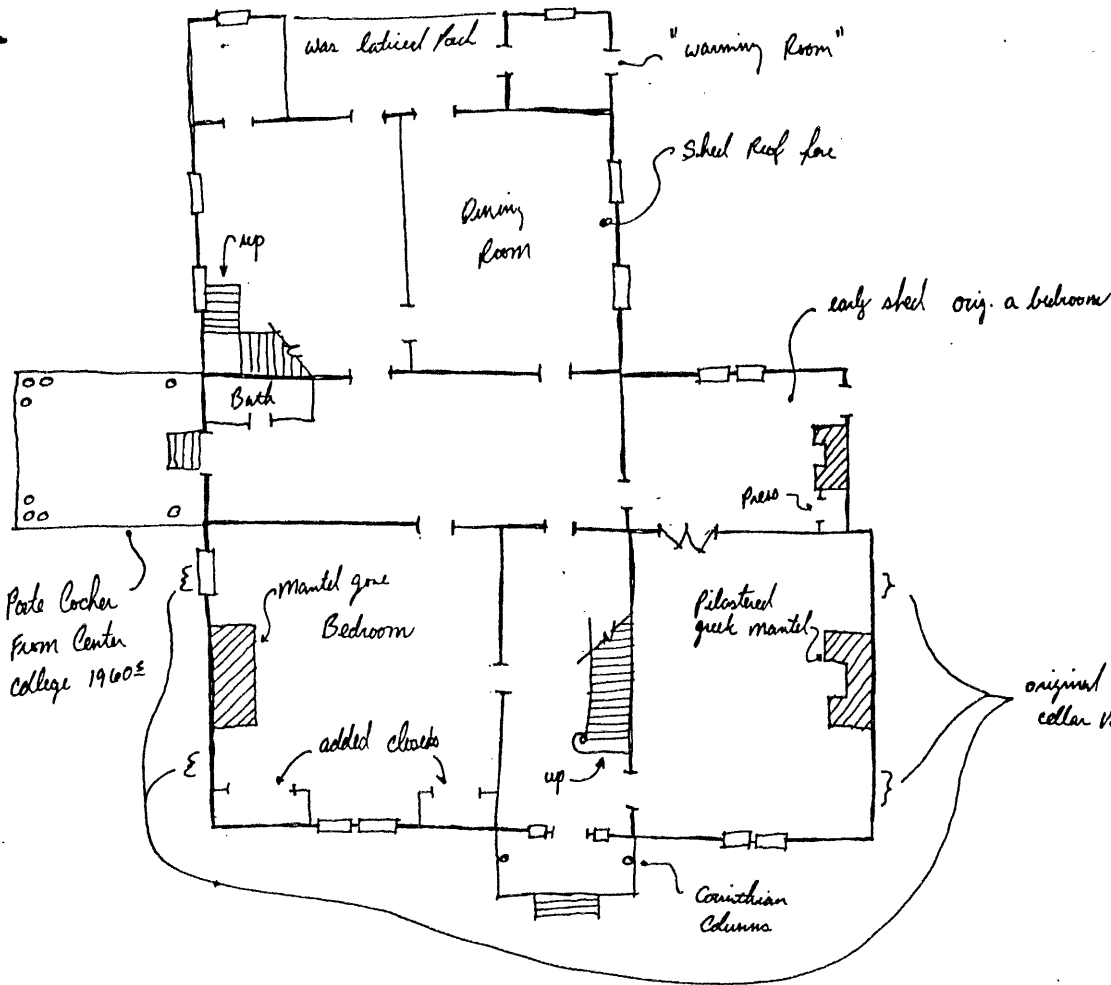 was laticed Poch
"warming Room"
Shed Roof
Dining
Room
up
early shed orig. a bedroom
Bath
Press
Porte Cocher
From Center
College 1960±
Mantel gone
Bedroom
Pilastered
greek mantel
original
cellar
added closets
up
Corinthian
Columns